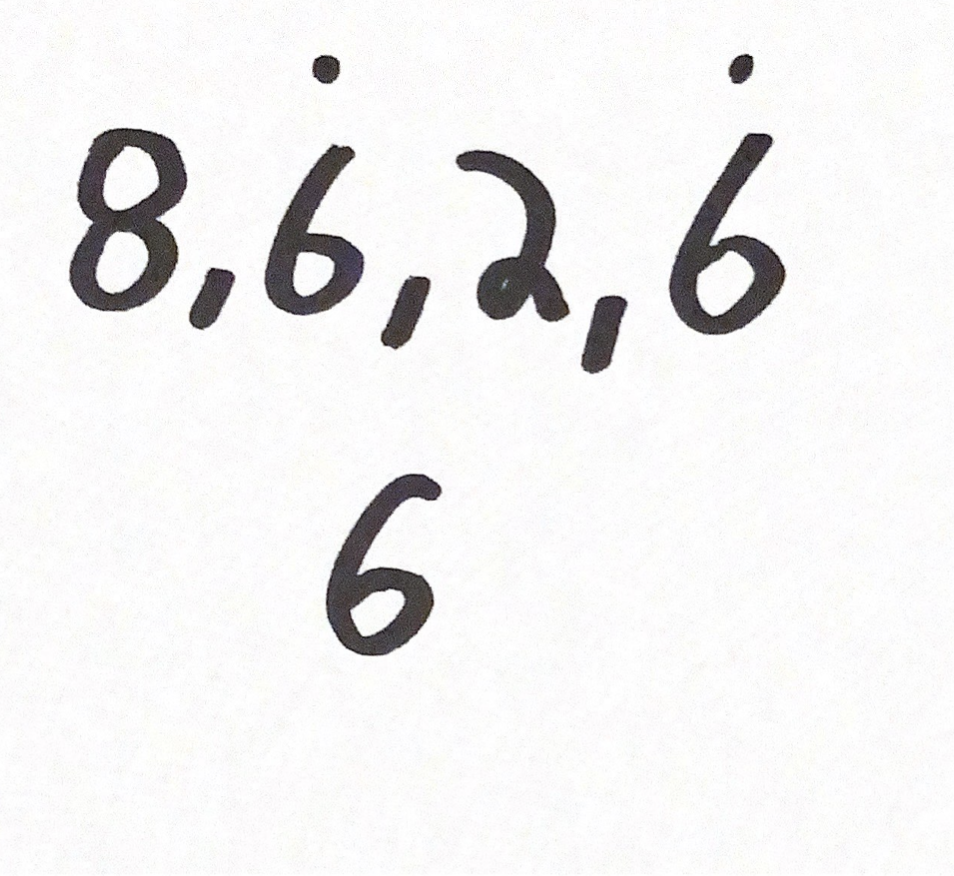 8,6̇,2,6̇
6